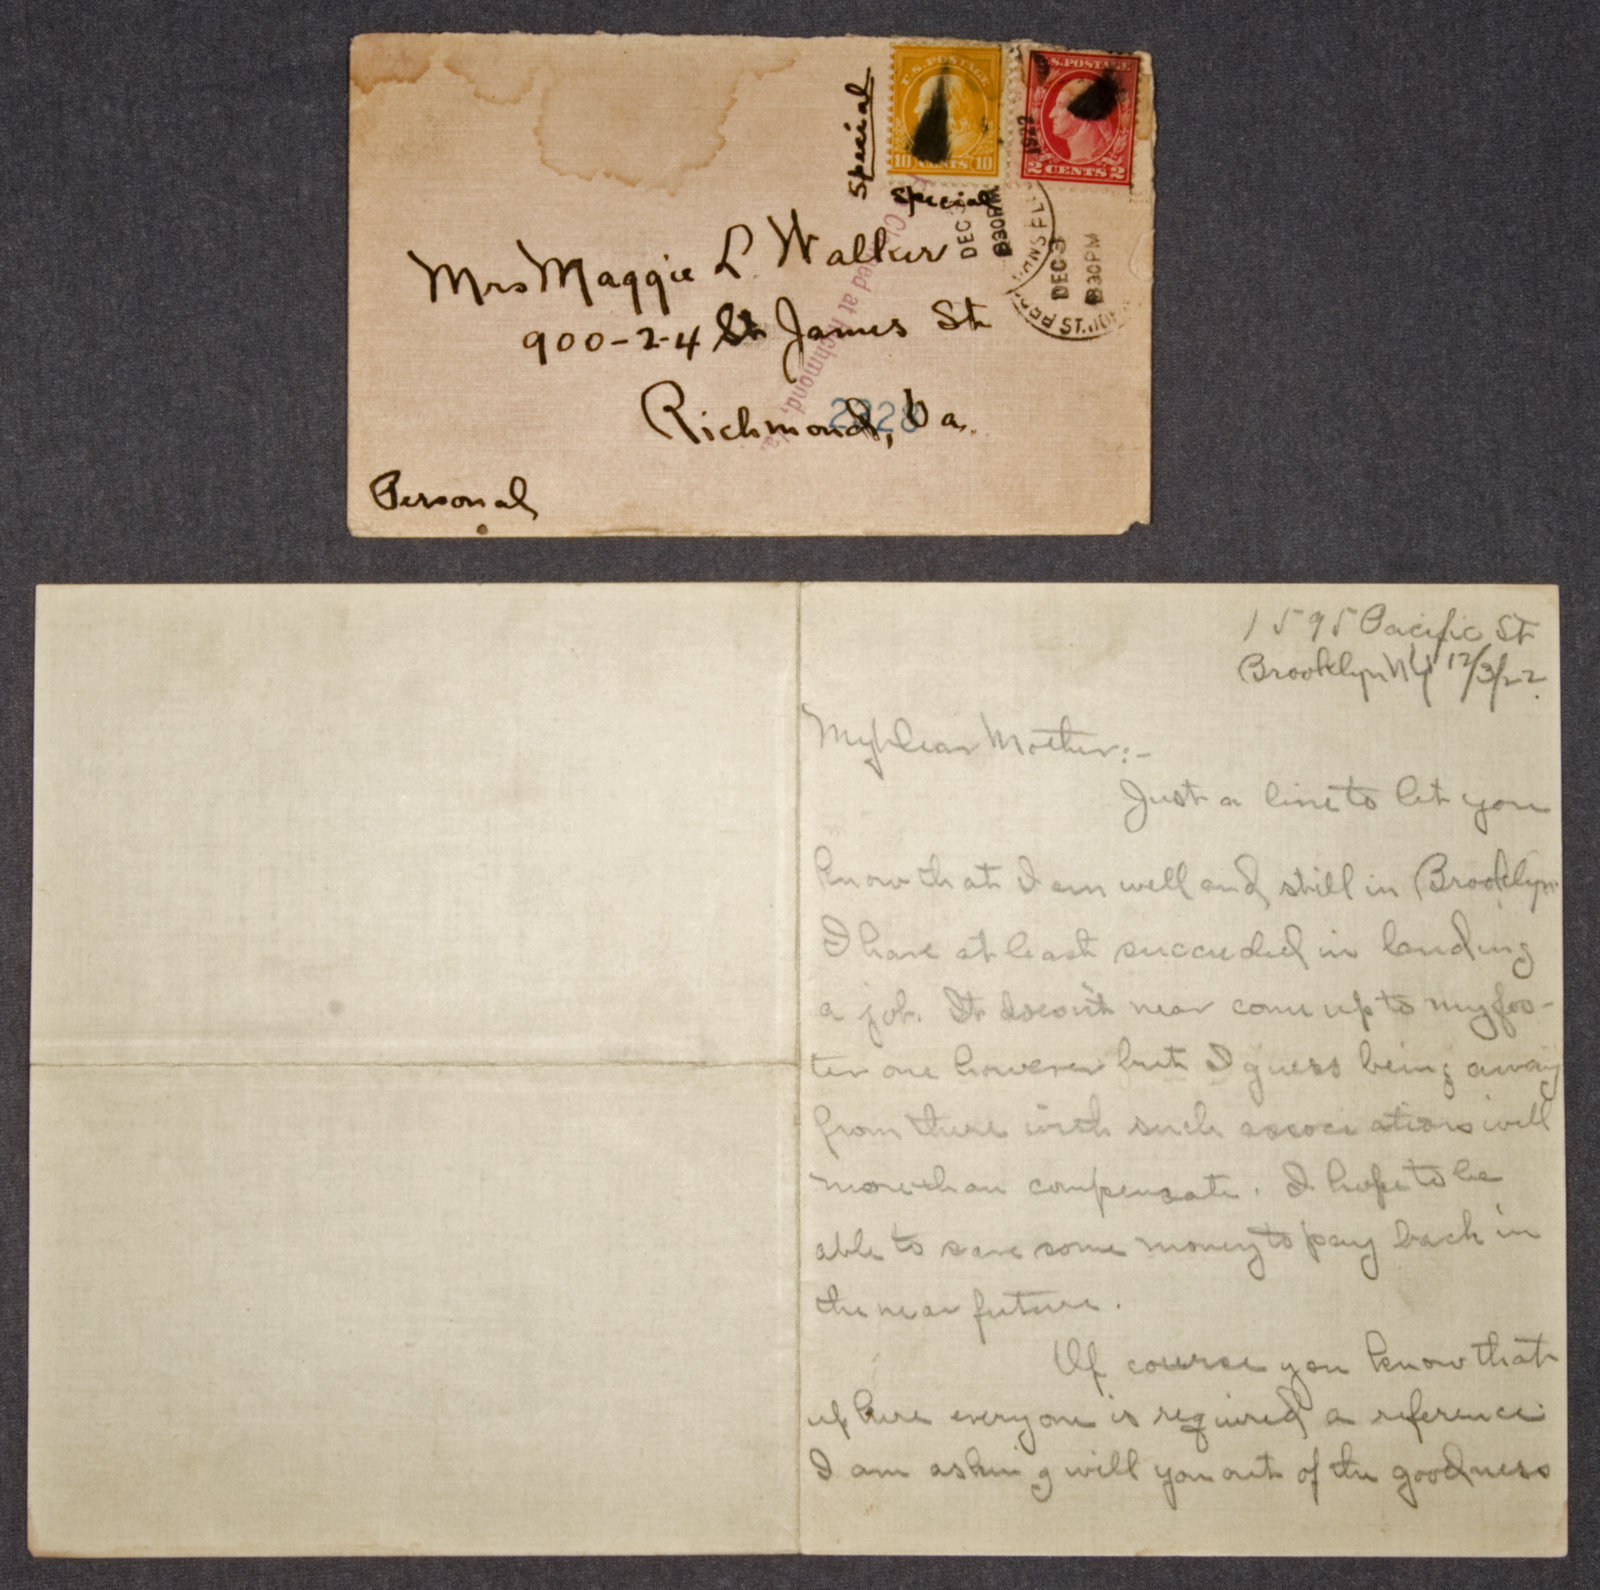 Special
U.S. POSTAGE
10 CENTS 10
U.S. POSTAGE
2 CENTS 2
1922
Special
DEC 3
830PM
DEC 3
830PM
ST. JOHN
Mrs Maggie L. Walker
900-2-4 St James St
Richmond, Va.
at Richmond, Va.
Personal
1595 Pacific St
Brooklyn NY 12/3/22.
My Dear Mother:-
Just a line to let you
know that I am well and still in Brooklyn
I have at least succeeded in landing
a job. It doesn't near come up to my fos-
ter one however but I guess being away
from there with such associations will
more than compensate. I hope to be
able to save some money to pay back in
the near future.
Of course you know that
up here everyone is required a reference
I am asking will you out of the goodness